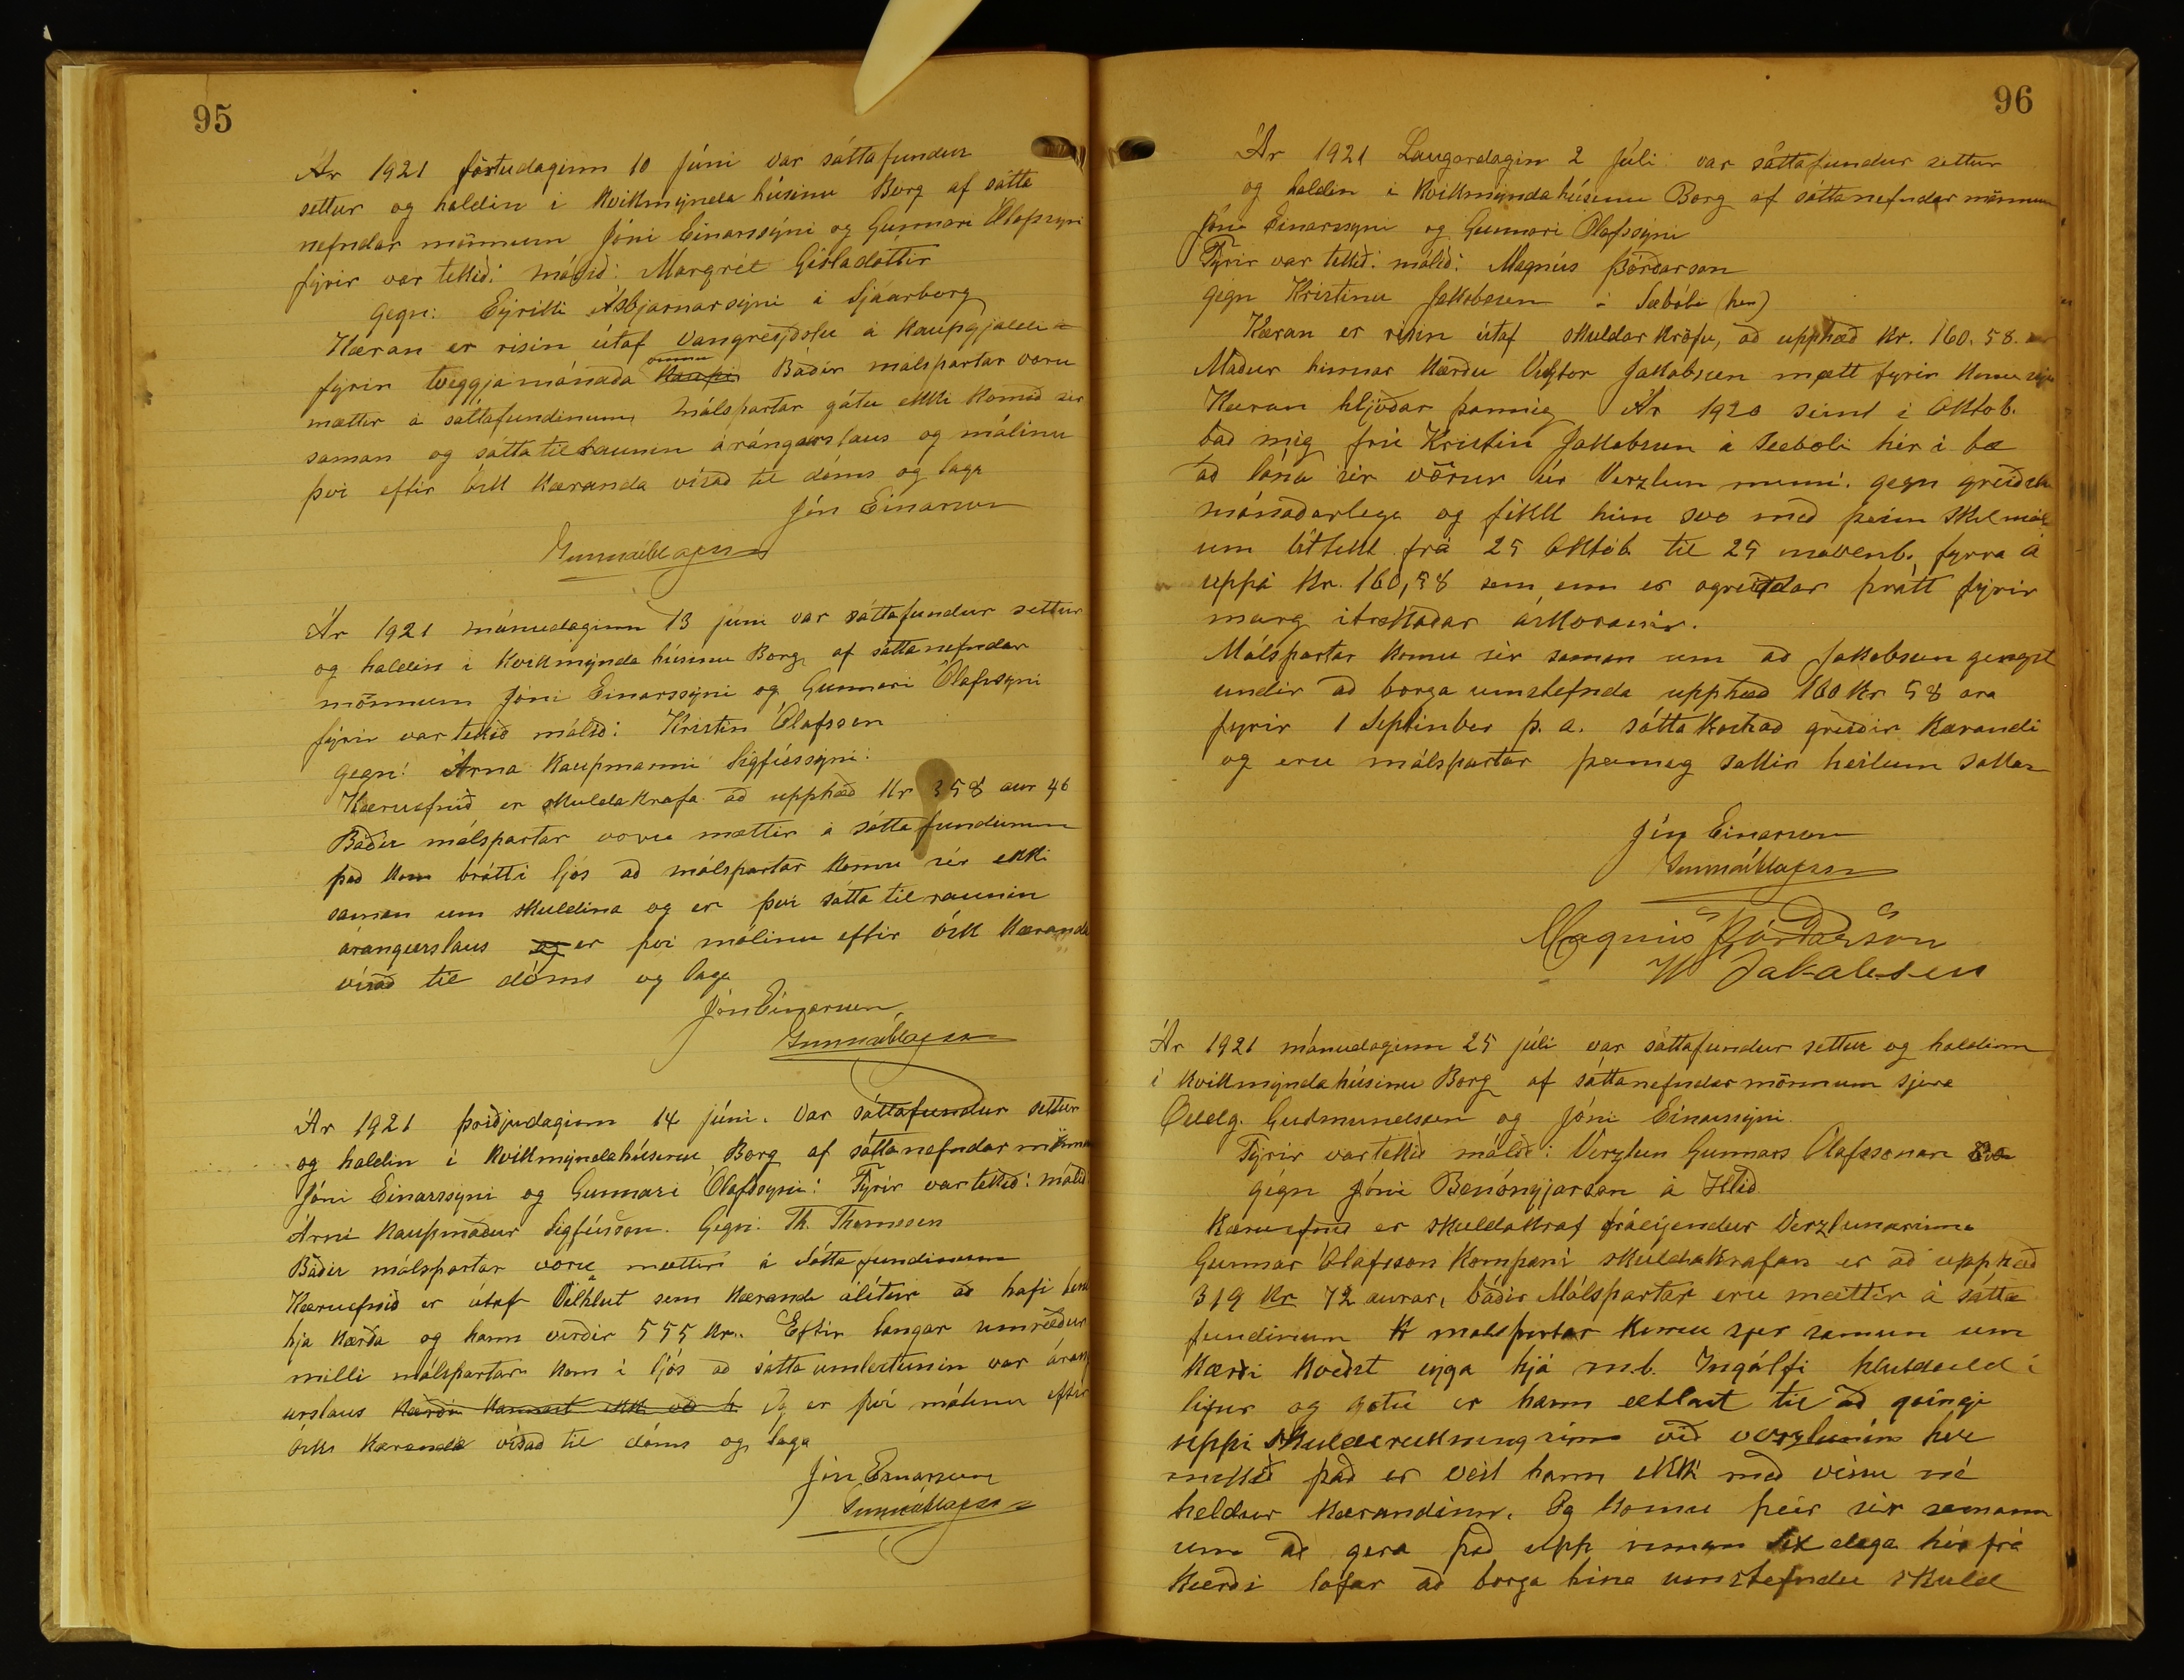 95
Ár 1921 föstudaginn 10 Júní var sáttafundur
settur og haldin i kvikmýnda húsinu Borg af sátta
nefndar mönnum Jóni Einarssýni og Gunnari Ólafssyni
fýrir var tekið: málið: Margrét Gísladóttir
gegn: Eýríki Ásbjarnarsýni i Sjáarborg
Kæran er risin útaf vangreiðslu á kaupgjaldi
fýrir tveggja mánaða kaupi Báðir málspartar voru
mættir á sáttafundinum, Málspartar gátu ekki komið sér
saman og sátta tilraunin árángurslaus og málinu
þvi eftir ósk kæranda vísað til dóms og laga
Jón Einarsson
Gunnar Ólafsson
Ár 1921 mánudaginn 13 júni var sáttafundur settur
og haldin i kvikmýnda húsinu Borg af sáttanefndar
mönnum Jóni Einarssýni og Gunnari Ólafssyni
fýrir var tekið málið: Kristin Ólafsson
gegn: Árna kaupmanni Sigfússýni:
Kæruefnið er skuldakrafa að upphæð Kr 358 aur 46
Báðir málspartar voru mættir á sátta fundinum
það kom brátt i ljós að málspartar komu sér ekki
saman um skuldina og er þvi sátta tilraunin
árangurslaus og er þvi málinu eftir ósk kæranda
vísað til dóms og laga
Jón Einarsson
Gunnar Ólafsson
Ár 1921 þriðjudaginn 14 júni. var sáttafundur settur
og haldin i kvikmýndahúsinu Borg af sáttanefndar mönnum
Jóni Einarssýni og Gunnari Ólafssyni: Fýrir var tekið: málið
Árni kaupmaður Sigfússon. Gegn: Th. Thomsen
Báðir málspartar voru mættir á Sáttafundinum
Kæruefnið er útaf Vélhlut sem kærandi álítur að hafi
hja kærða og hann virðir 555 kr. Eftir langar umræður
milli málspartar kom i ljós að sátta umleitunin var árang
urslaus Kærði kannast ekki við h Og er því málinu eftir
ósk kæranda vísað til dóms og laga
Jón Einarsson
Gunnar Ólafsson
96
Ár 1921 Laugardagin 2 Júli var sáttafundur settur
og haldin i kvikmyndahúsinu Borg af sáttanefndar mönnum
Jóni Einarssyni og Gunnari Ólafssýni
Fýrir var tekið: málið: Magnús Þórðarson
gegn Kristinu Jakobsen á Sæbóli (hér)
Kæran er risin útaf skuldar kröfu, að upphæð kr. 160.58.
Maður hinnar kærðu Viktor Jakobsen mætt fyrir konu sýna
Kæran hljóðar þannig Ár 1920 seint i Oktob.
bað mig frú Kristin Jakobsen á Seeboli hér i bæ
að lána sér vörur úr Verzlun minni. gegn greiðslu
mánaðarlega og fékk hún svo með þeim skilmál
um úttekt frá 25 Októb. til 25 novenb. fyrra á
uppá kr. 160,58 sem enn er ogreiddar þrátt fýrir
marg itrekaðar áskoranir.
Málspartar komu sér saman um að Jakobsen gengst
undir að borga umstefnda upphæð 160 kr 58 ara
fyrir 1 Septinber þ. a. sáttakostað greiðir kærandi
og eru málspartar þannig sáttir heilum sáttum
Jón Einarsson
Gunnar Ólafsson
Magnús Þórðarson
W Jakobsen
Ár 1921 mánudaginn 25 júli var sáttafundur settur og haldinn
i kvikmýndahúsinu Borg af sáttanefndarmönnum sjera
Oddg. Guðmundsen og Jóni Einarssýni.
Fýrir var tekið málið: Verzlun Gunnars Ólafssonar
gegn Jóni Benónýjarsan á Hlið
Kæruefnið er skuldakraf frá eigendur Verzlunarinna
Gunnar Ólafsson Kompani skuldakrafan er að upphæð
319 kr 72 aurar, báðir Málspartar eru mættir á sátta
fundinum málspartar komu sjer saman um
kærði kveðst eyga hjá m.b. Ingólfi
lifur og gotu er hann ætlast til að gaingi
uppi skuldareikning sinn við verzlunin hve
mikið það er veit hann ekki með vissu né
heldur kærandinn. Og komu þeir sér saman
um að gera það upp innan sex daga hér frá
kærði lofar að borga hina umstefndu skuld